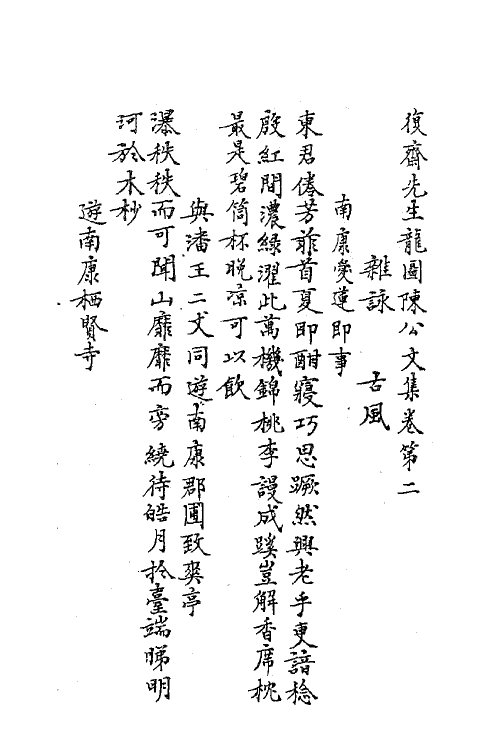 復齋先生龍圖陳公文集卷第二
雜詠　古風
南康愛蓮即事
東君倦芳菲首夏即酣寢巧思蹶然興老手更諳稔
殷紅間濃綠濯此萬機錦桃李謾成蹊豈解香席枕
最是碧筒杯晚凉可以飲
與潘王二丈同遊南康郡圃致爽亭
瀑秩秩而可聞山靡靡而旁繞待皓月於臺端睇明
河於木杪
遊南康栖賢寺